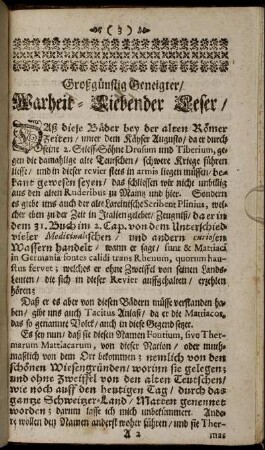 ( 3 )
Großgünstig Geneigter /
Warheit-Liebender Leser /
DAß diese Bäder bey der alten Römer
Zeiten / unter dem Käyser Augusto / da er durch
seine 2. Stieff-Söhne Drusum und Tiberium, ge-
gen die damahlige alte Teutschen / schwere Kriege führen
liesse / und in dieser revier stets in armis liegen müssen / be-
kant gewesen seyen / das schliessen wir nicht unbillig
aus den alten Ruderibus zu Mäntz und hier. Sondern
es giebt uns auch der alte Lateinische Scribent Plinius, wel-
cher eben zu der Zeit in Italien gelebet / Zeugnüß / da er in
dem 31. Buch im 2. Cap. von dem Unterschied
vieler Medicinalischen / und andern curiosen
Wassern handelt / wann er sagt / sunt & Mattiaci
in Germania fontes calidi trans Rhenum, quorum hau-
stus fervet; welches er ohne Zweiffel von seinen Lands-
Leuten / die sich in dieser Revier auffgehalten / erzehlen
hören:
Daß er es aber von diesen Bädern müsse verstanden ha-
ben / gibt uns auch Tacitus Anlaß / da er die Mattiacos,
das so genannte Volck / auch in diese Gegend setzet.
Es sey nun / daß sie diesen Namen Fontium, sive Ther-
marum Mattiacarum, von dieser Nation / oder muth-
maßlich von dem Ort bekommen; nemlich von den
schönen Wiesengründen / worinn sie gelegen;
und ohne Zweiffel von den alten Teutschen /
wie noch auff den heutigen Tag / durch das
gantze Schweitzer-Land / Matten genennet
worden; darum lasse ich mich unbekümmert. Ande-
re wollen den Namen anderst woher führen / und sie Ther-
A 2 mas